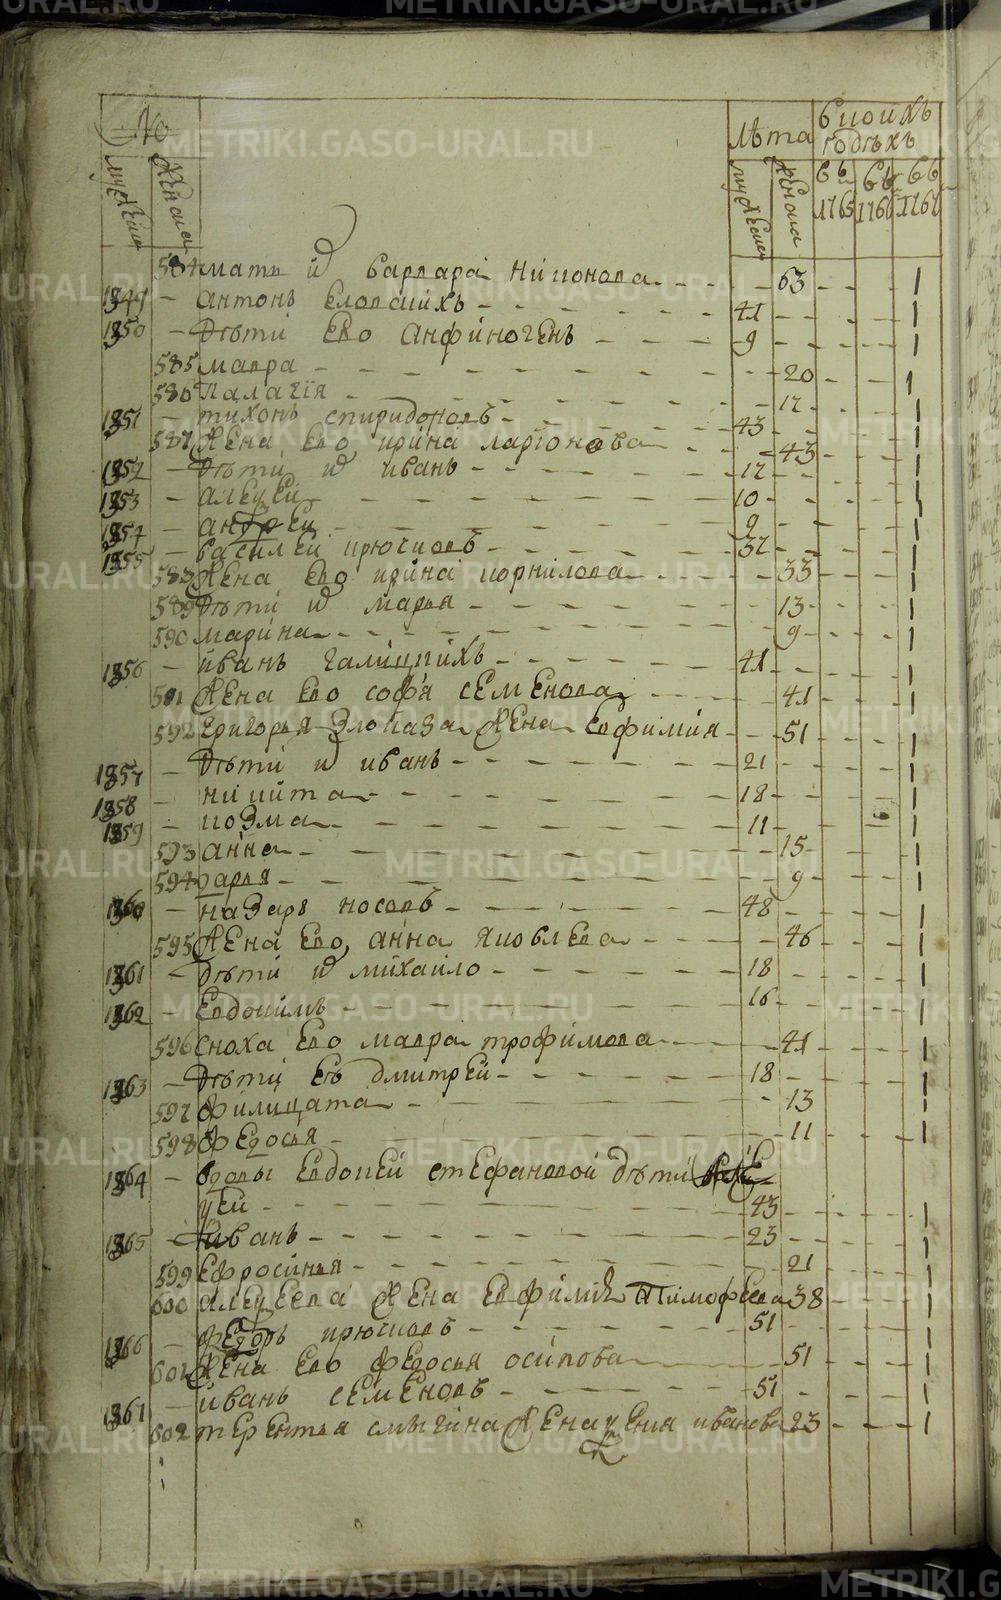 METRIKI.GASO-URAL.RU
№ лѣта в коихъ годѣхъ
мужеска женска мужеска женска въ 1765 въ 1766 въ 1767
584 мать и варвара никонова 63
1849 антонъ словскихъ 41
1850 дѣти ево анфиногенъ 9
585 мавра 20
586 палагiя 17
1851 тихонъ спиридоновъ 43
587 жена ево ирина ларiонова 43
1852 дѣти и иванъ 17
1853 алеѯей 10
1854 андрей 9
1855 василей крючковъ 37
588 жена ево ирина корнилова 33
589 дѣти и марья 13
590 марина 9
1856 иванъ галицкихъ 41
591 жена ево софья семенова 41
592 григорья злоказа жена евфимия 51
1857 дѣти и иванъ 21
1858 никита 18
1859 козма 11
593 анна 15
594 дарья 9
1860 назаръ носовъ 48
595 жена ево анна яковлева 46
1861 дѣти и михаило 18
1862 евдокимъ 16
596 сноха ево мавра трофимова 41
1863 дѣти ея дмитрей 18
597 филицата 13
598 федосья 11
1864 вдовы евдокеи стефановой дѣти але
ѯей 43
1865 иванъ 23
599 ефросинья 21
600 алеѯеева жена евфимия тимофеева 38
1866 федоръ крючковъ 51
601 жена ево федосья осипова 51
1867 иванъ семеновъ 51
602 терентья смыгина жена ѯения иванова 23